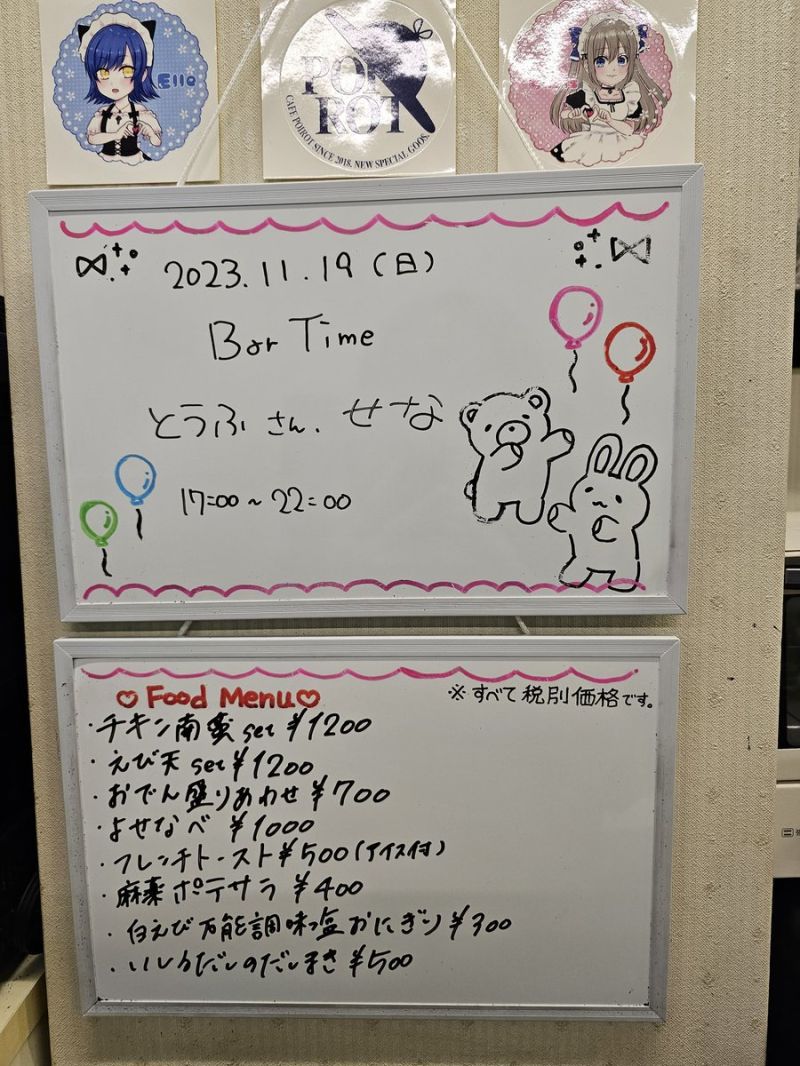 Elle
POI
ROT
CAFE POIROT SINCE 2018. NEW SPECIAL GOOS.
2023.11.19(日)
Bar Time
とうふさん、せな
17:00~22:00
Food Menu
※すべて税別価格です。
・チキン南蛮set ¥1200
・えび天set ¥1200
・おでん盛りあわせ ¥700
・よせなべ ¥1000
・フレンチトースト ¥500(アイス付)
・麻薬ポテサラ ¥400
・白えび万能調味塩おにぎり ¥300
・いしるだしのだしまき ¥500